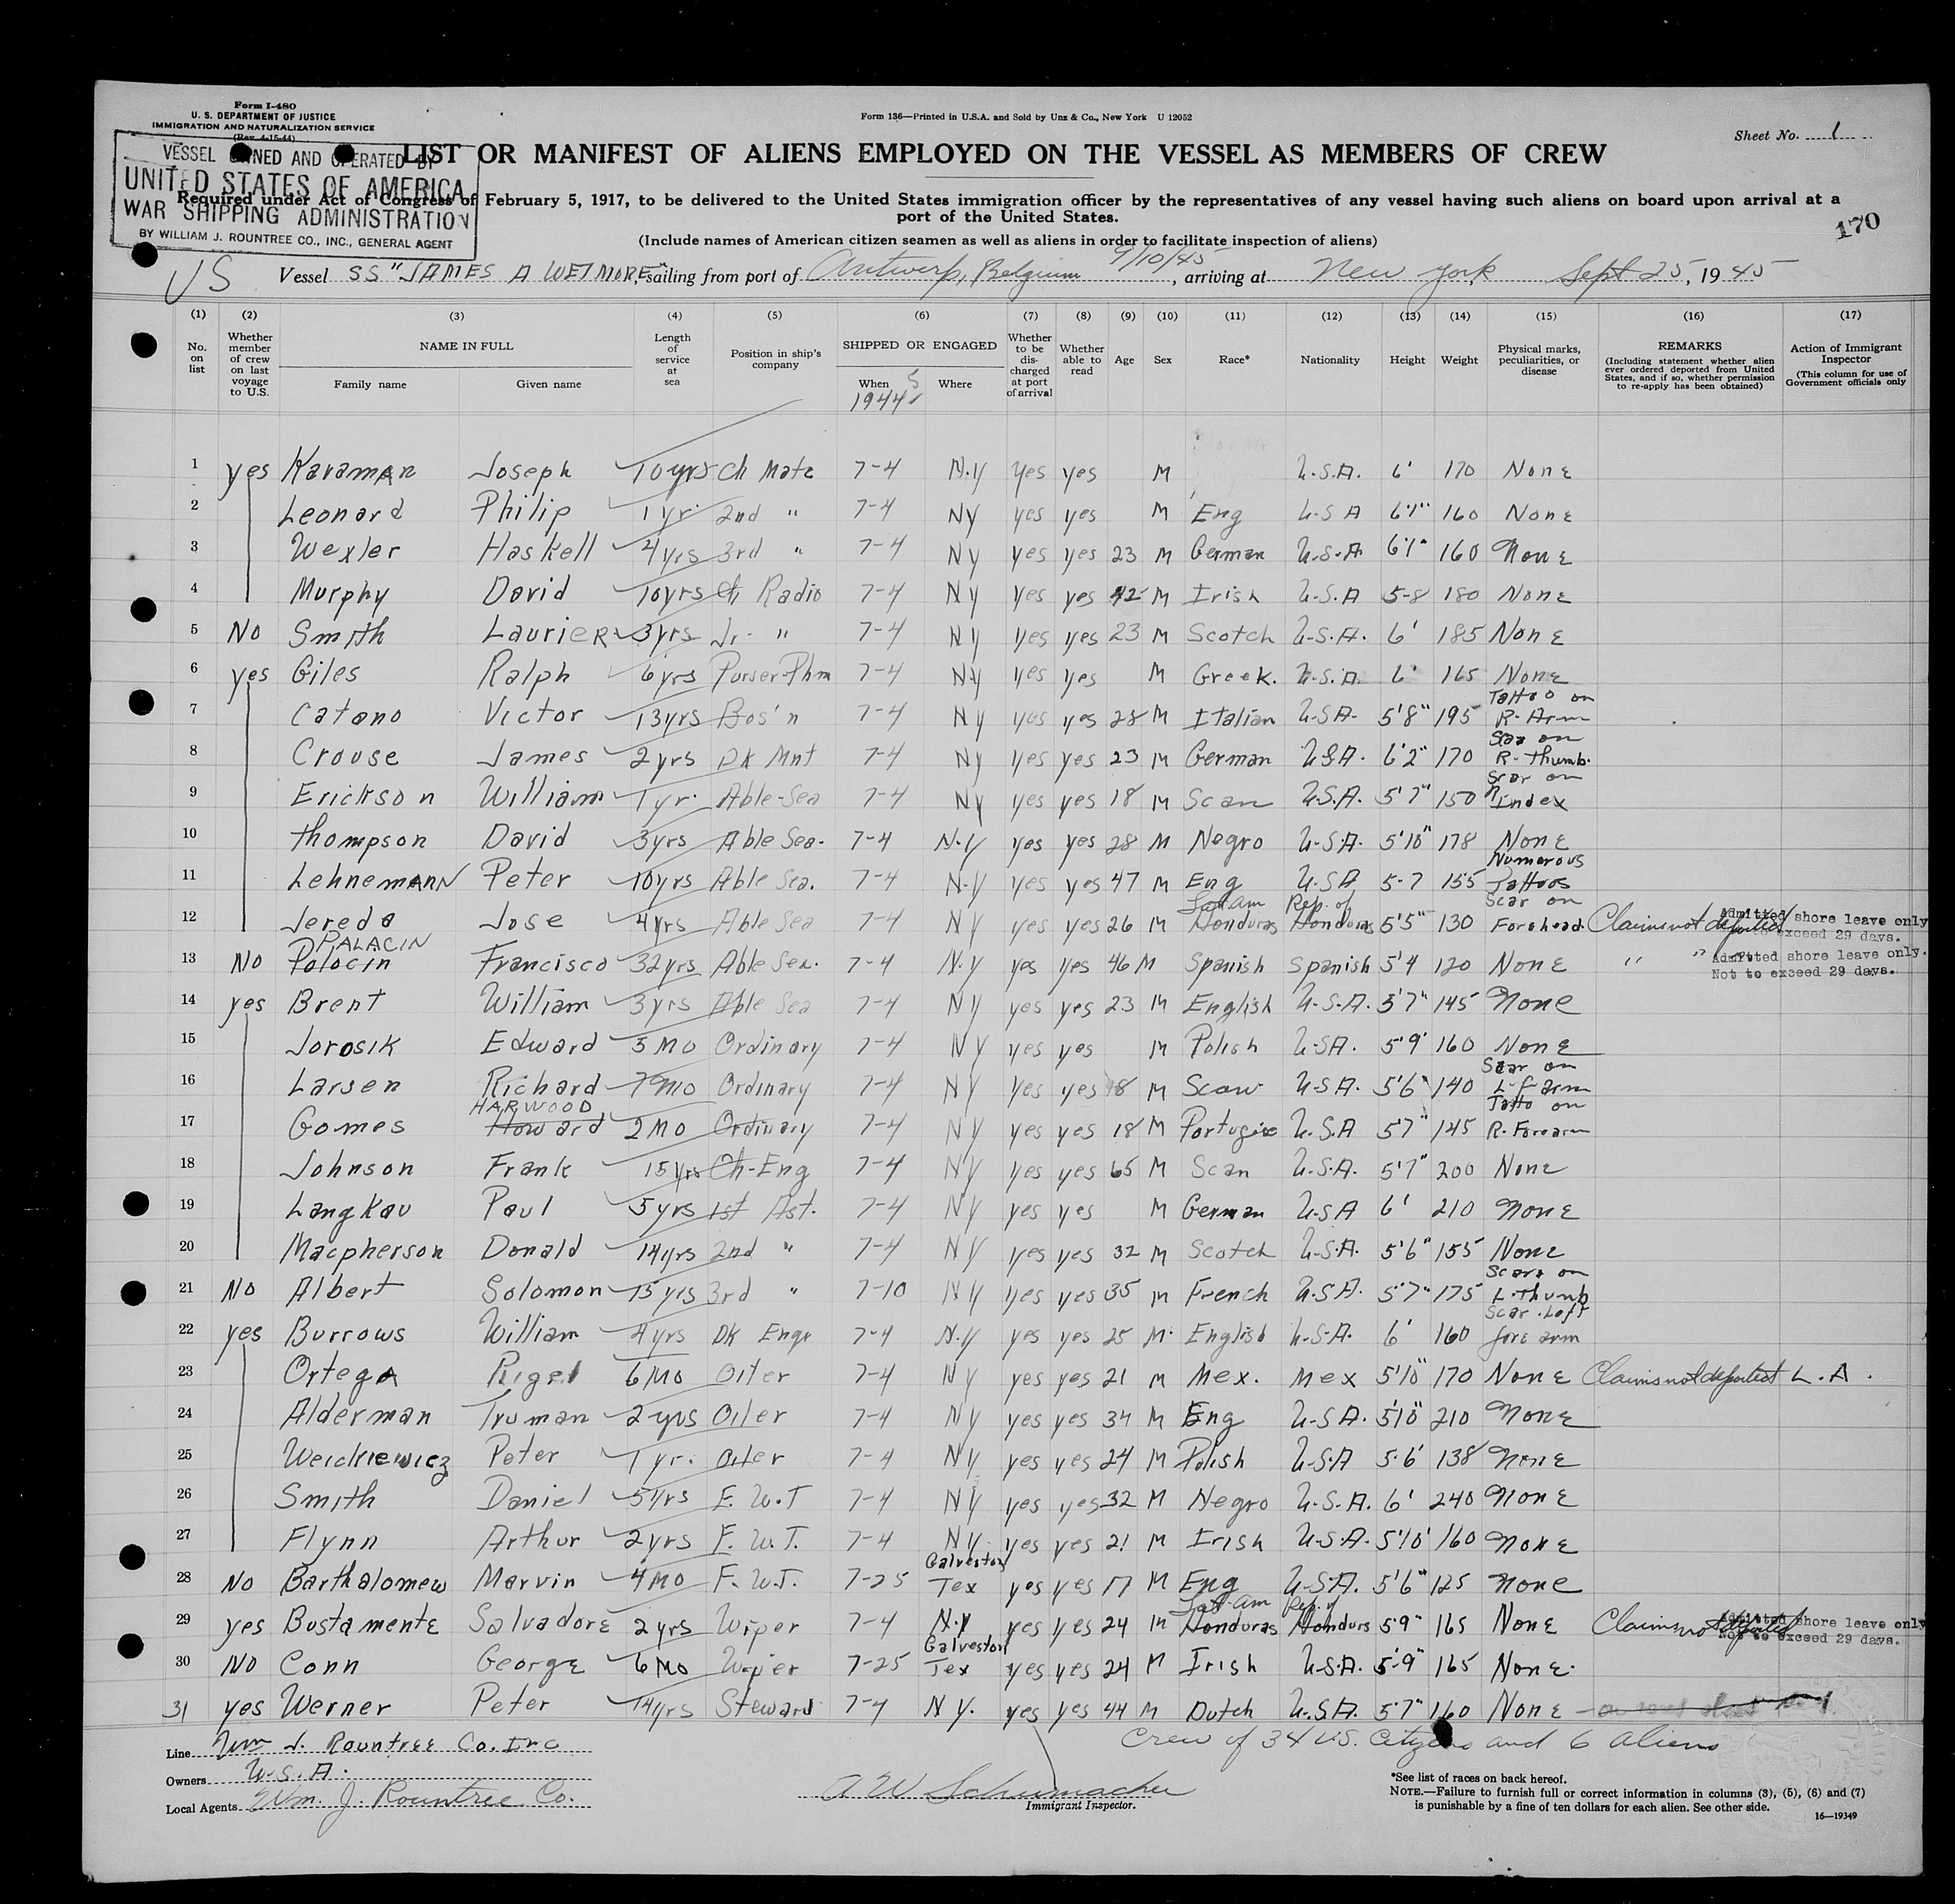 Form I-480
U. S. DEPARTMENT OF JUSTICE
IMMIGRATION AND NATURALIZATION SERVICE
(Rev. 4-15-44)
Form 136—Printed in U.S.A. and Sold by Unz & Co., New York U 12052
Sheet No. 1
VESSEL OWNED AND OPERATED BY
UNITED STATES OF AMERICA
WAR SHIPPING ADMINISTRATION
BY WILLIAM J. ROUNTREE CO., INC., GENERAL AGENT
LIST OR MANIFEST OF ALIENS EMPLOYED ON THE VESSEL AS MEMBERS OF CREW
Required under Act of Congress of February 5, 1917, to be delivered to the United States immigration officer by the representatives of any vessel having such aliens on board upon arrival at a
port of the United States.
170
(Include names of American citizen seamen as well as aliens in order to facilitate inspection of aliens)
US Vessel SS "JAMES A WETMORE", sailing from port of Antwerp, Belgium 9/10/45, arriving at New York, Sept 25, 1945
(1) (2) (3) (4) (5) (6) (7) (8) (9) (10) (11) (12) (13) (14) (15) (16) (17)
No. on list
Whether member of crew on last voyage to U.S.
NAME IN FULL
Family name Given name
Length of service at sea
Position in ship's company
SHIPPED OR ENGAGED
When Where
1944 5
Whether to be discharged at port of arrival
Whether able to read
Age Sex Race* Nationality Height Weight
Physical marks, peculiarities, or disease
REMARKS
(Including statement whether alien ever ordered deported from United States, and if so, whether permission to re-apply has been obtained)
Action of Immigrant Inspector
(This column for use of Government officials only
1 yes Karaman Joseph 10yrs Ch Mate 7-4 N.Y yes yes M U.S.A. 6' 170 None
2 Leonard Philip 1yr. 2nd " 7-4 NY yes yes M Eng U.S.A 6'1" 160 None
3 Wexler Haskell 4yrs 3rd " 7-4 NY yes yes 23 M German U.S.A 6'1" 160 None
4 Murphy David 10yrs Ch Radio 7-4 NY yes yes 42 M Irish U.S.A 5-8 180 None
5 No Smith Laurier 3yrs Jr. " 7-4 NY yes yes 23 M Scotch U.S.A. 6' 185 None
6 yes Giles Ralph 6yrs Purser-Phm 7-4 NY yes yes M Greek. U.S.A. 6' 165 None
7 Catano Victor 13yrs Bos'n 7-4 NY yes yes 28 M Italian U.S.A. 5'8" 195 Tattoo on R. Arm
8 Crouse James 2yrs DK Mnt 7-4 NY yes yes 23 M German U.S.A. 6'2" 170 Scar on R-thumb.
9 Erickson William 1yr. Able-Sea 7-4 NY yes yes 18 M Scan U.S.A. 5'7" 150 Scar on R Index
10 Thompson David 3yrs Able Sea. 7-4 N.Y yes yes 28 M Negro U.S.A. 5'10" 178 None
11 Lehnemann Peter 10yrs Able Sea. 7-4 N.Y yes yes 47 M Eng U.S.A 5-7 155 Numerous Tattoos
12 Jereda Jose 4yrs Able Sea 7-4 NY yes yes 26 M Lat am Honduras Rep. of Honduras 5'5" 130 Scar on Forehead Claims not deported Admitted shore leave only
to exceed 29 days.
13 No Palacin PALACIN Francisco 32yrs Able Sea. 7-4 N.Y yes yes 46 M Spanish Spanish 5'4 120 None " " Admitted shore leave only.
Not to exceed 29 days.
14 yes Brent William 3yrs Able Sea 7-4 NY yes yes 23 M English U.S.A. 5'7" 145 None
15 Jorosik Edward 3 Mo Ordinary 7-4 NY yes yes M Polish U.S.A. 5'9' 160 None
16 Larsen Richard 7 Mo Ordinary 7-4 NY yes yes 18 M Scan U.S.A. 5'6" 140 Scar on L-f-arm
17 Gomes Howard HARWOOD 2 Mo Ordinary 7-4 NY yes yes 18 M Portugise U.S.A 5'7" 145 Tatto on R. Forearm
18 Johnson Frank 15yrs Ch-Eng 7-4 NY yes yes 65 M Scan U.S.A. 5'7" 200 None
19 Langkau Paul 5yrs 1st Ast. 7-4 NY yes yes M German U.S.A 6' 210 None
20 Macpherson Donald 14yrs 2nd " 7-4 NY yes yes 32 M Scotch U.S.A. 5'6" 155 None
21 No Albert Solomon 15yrs 3rd " 7-10 NY yes yes 35 M French U.S.A. 5'7" 175 Scars on L-thumb
22 yes Burrows William 4yrs DK Engr 7-4 N.Y yes yes 25 M. English U.S.A. 6' 160 Scar-Left fore arm
23 Ortega Rigel 6 Mo Oiler 7-4 NY yes yes 21 M Mex. Mex 5'10" 170 None Claims not deported L. A.
24 Alderman Truman 2yrs Oiler 7-4 NY yes yes 34 M Eng U.S.A. 5'10" 210 None
25 Weickiewicz Peter 1yr. Oiler 7-4 NY yes yes 24 M Polish U.S.A 5.6' 138 None
26 Smith Daniel 5yrs F. W.T 7-4 NY yes yes 32 M Negro U.S.A. 6' 240 None
27 Flynn Arthur 2yrs F. W.T. 7-4 NY. yes yes 21 M Irish U.S.A. 5'10' 160 None
28 No Barthalomew Marvin 4 Mo F. W.T. 7-25 Galveston Tex yes yes 17 M Eng U.S.A. 5'6" 125 None
29 yes Bustamente Salvadore 2yrs Wiper 7-4 N.Y yes yes 24 M Lat-am Honduras Rep. of Hondurs 5'9" 165 None Claims not deported Admitted shore leave only
Not to exceed 29 days.
30 No Conn George 6 Mo Wiper 7-25 Galveston Tex yes yes 24 M Irish U.S.A. 5-9" 165 None.
31 yes Werner Peter 14yrs Steward 7-4 N.Y. yes yes 44 M Dutch U.S.A. 5'7" 160 None
Line Wm J. Rountree Co. Inc
Crew of 34 U.S. Citizens and 6 aliens
Owners W.S.A.
Local Agents Wm. J. Rountree Co.
A W Schumacher
Immigrant Inspector.
*See list of races on back hereof.
NOTE.—Failure to furnish full or correct information in columns (3), (5), (6) and (7)
is punishable by a fine of ten dollars for each alien. See other side.
16—19349